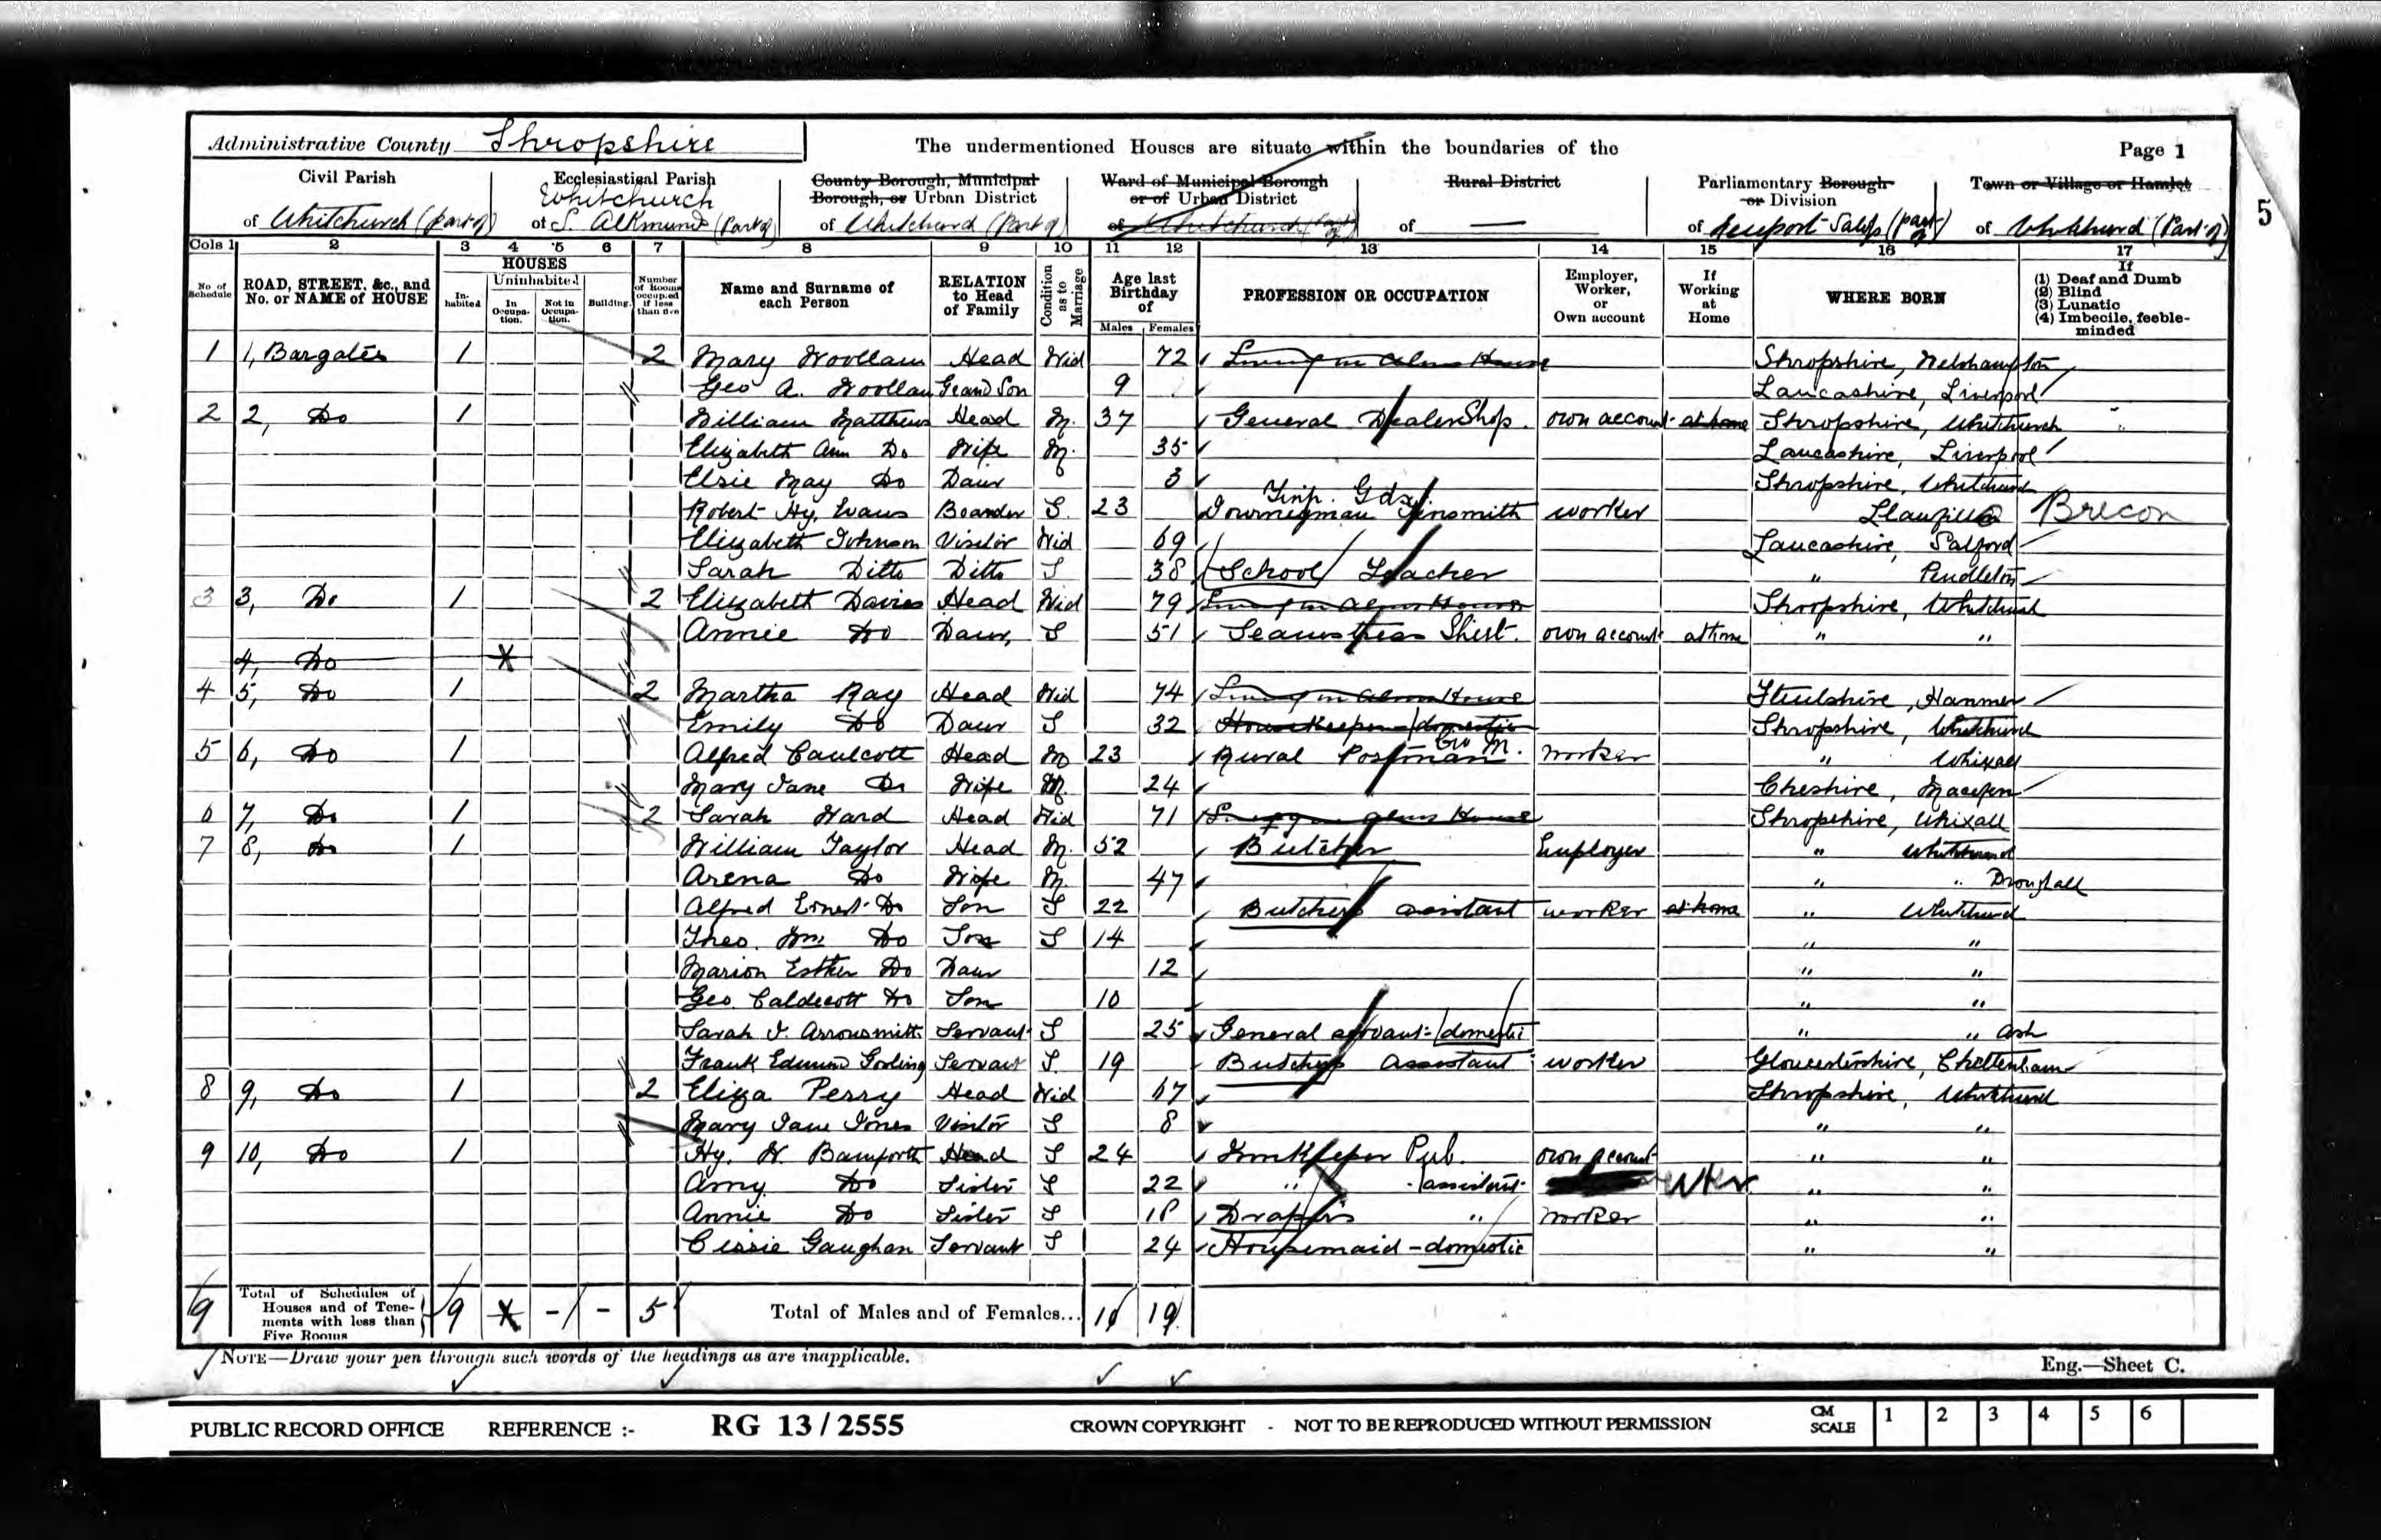 Administrative County Shropshire The undermentioned Houses are situate within the boundaries of the Page 1
Civil Parish Ecclesiastical Parish County Borough, Municipal Borough, or Urban District Ward of Municipal Borough or of Urban District Rural District Parliamentary Borough or Division Town or Village or Hamlet
of Whitchurch (part of) of Whitchurch S. Alkmund (Part of) of Whitchurch (Part of) of Whitchurch (Part of) of — of Newport Salop (part of) of Whitchurch (Part of) 5
Cols 1 2 3 4 5 6 7 8 9 10 11 12 13 14 15 16 17
No of Schedule ROAD, STREET, &c., and No. or NAME of HOUSE HOUSES In-habited Uninhabited In Occupa-tion. Not in Occupa-tion. Building. Number of Rooms occupied if less than five Name and Surname of each Person RELATION to Head of Family Condition as to Marriage Age last Birthday of Males Females PROFESSION OR OCCUPATION Employer, Worker, or Own account If Working at Home WHERE BORN If (1) Deaf and Dumb (2) Blind (3) Lunatic (4) Imbecile, feeble-minded
1 1, Bargates 1 2 Mary Woollam Head Wid 72 Living in Alms House Shropshire, Welshampton
Geo A. Woollam Grand Son 9 Lancashire, Liverpool
2 2, Do 1 William Matthews Head M. 37 General Dealer Shop. own account at home Shropshire, Whitchurch
Elizabeth Ann Do Wife M. 35 Lancashire, Liverpool
Elsie May Do Daur 3 Shropshire, Whitchurch
Robert Hy. Evans Boarder S. 23 Journeyman Tinsmith worker Brecon
Elizabeth Johnson Visitor Wid 69 Lancashire, Salford
Sarah Ditto Ditto S 38 School Teacher " Pendleton
3 3, Do 1 2 Elizabeth Davies Head Wid 79 Living in Alms House Shropshire, Whitchurch
Annie Do Daur, S 51 Seamstress Shirt. own account at home " "
4, Do X
4 5, Do 1 2 Martha Ray Head Wid 74 Living in Alms House Flintshire, Hanmer
Emily Do Daur S 32 Housekeeper domestic Shropshire, Whitchurch
5 6, Do 1 Alfred Caulcott Head M 23 Rural Postman worker " Whixall
Mary Jane Do Wife M. 24 Cheshire, Macefen
6 7, Do 1 2 Sarah Ward Head Wid 71 Living in Alms House Shropshire, Whixall
7 8, Do 1 William Taylor Head M. 52 Butcher Employer " Whitchurch
Arena Do Wife M. 47 " "
Alfred Ernest Do Son S 22 Butcher's assistant worker at home " Whitchurch
Theo. Wm. Do Son S 14 " "
Marion Esther Do Daur 12 " "
Geo Caldecott Do Son 10 " "
Sarah J. Arrowsmith Servant S 25 General servant domestic " " Ash
Frank Edmund Servant S. 19 Butcher's Assistant worker Gloucestershire, Cheltenham
8 9, Do 1 2 Eliza Perry Head Wid 67 Shropshire, Whitchurch
Mary Jane Jones Visitor S 8 " "
9 10, Do 1 Hy. W. Bamforth Head S 24 Innkeeper Pub. own account " "
Amy Do Sister S 22 " assistant Wkr " "
Annie Do Sister S 18 Draper's " worker " "
Cissie Gaughan Servant S 24 Housemaid - domestic " "
9 Total of Schedules of Houses and of Tene-ments with less than Five Rooms 9 X - - 5 Total of Males and of Females... 11 19
NOTE—Draw your pen through such words of the headings as are inapplicable. Eng.—Sheet C.
PUBLIC RECORD OFFICE REFERENCE :- RG 13 / 2555 CROWN COPYRIGHT - NOT TO BE REPRODUCED WITHOUT PERMISSION CM SCALE 1 2 3 4 5 6